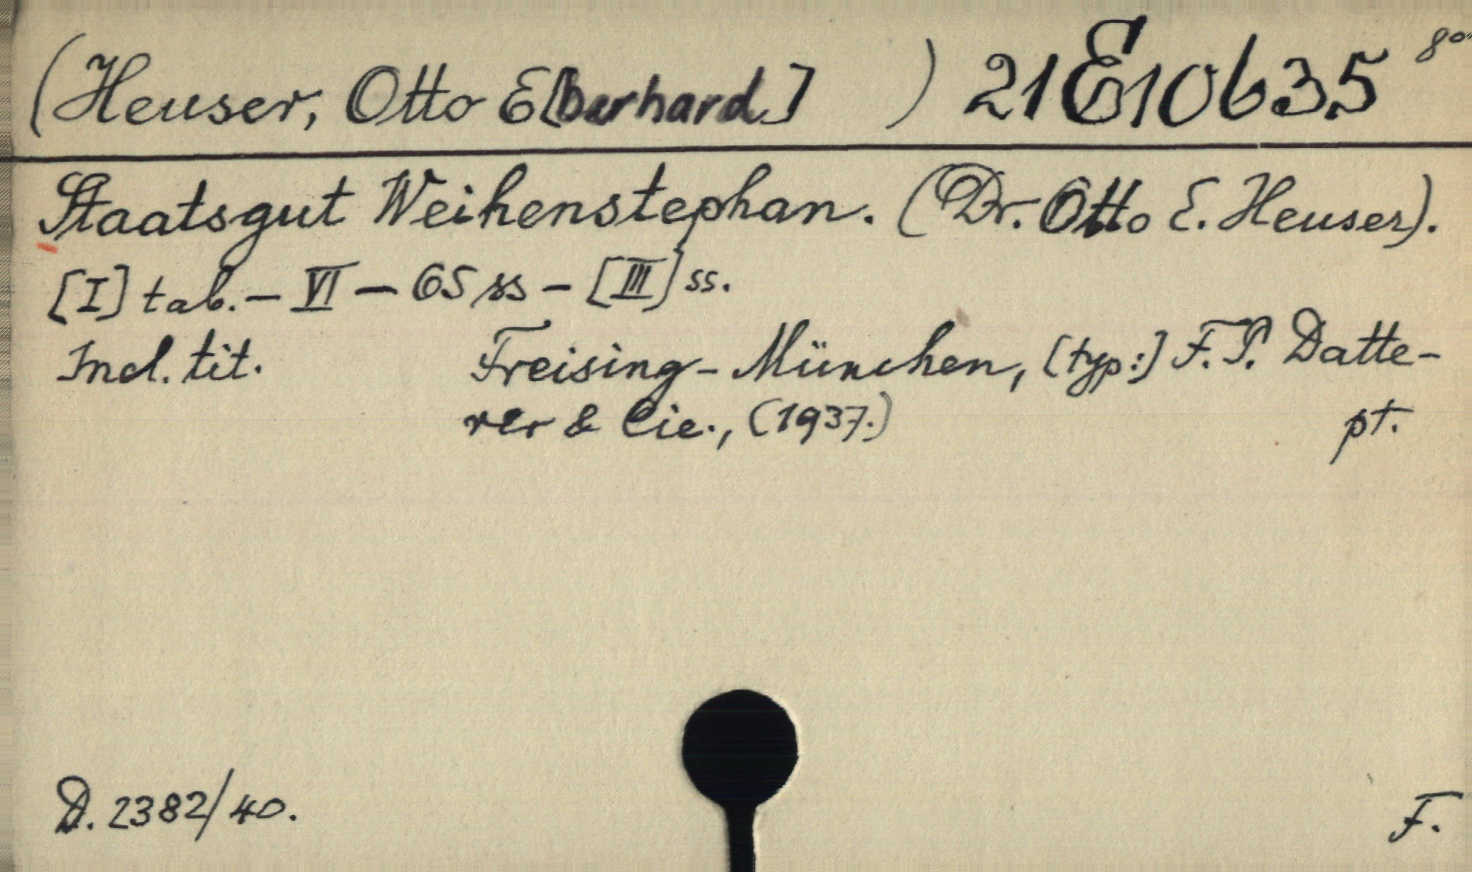 (Heuser, Otto E[berhard] ) 21E10635 8°
Staatsgut Weihenstephan. (Dr. Otto E. Heuser).
[I] tab. — VI — 65 ss — [III] ss.
Incl. tit. Freising-München, [typ:] F. P. Datte-
rer & Cie., (1937.) pt.
D. 2382/40. F.